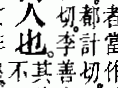 者當作
都計切
切。李善
人也。其
不